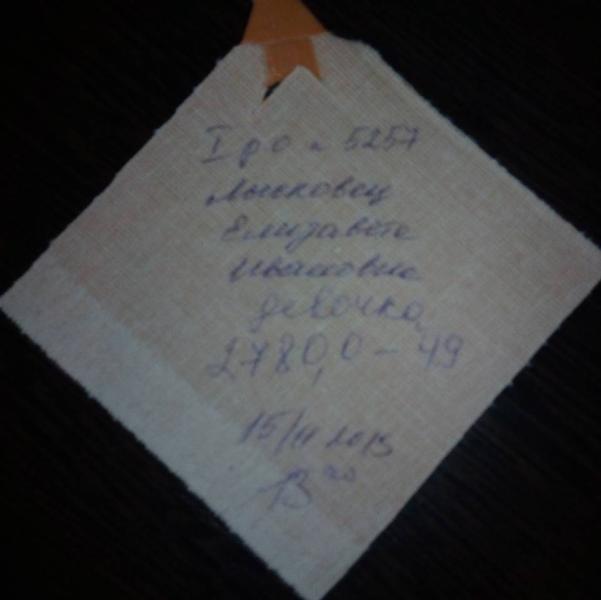 I р о н 5257
Лысковец
Елизавета
Ивановна
девочка
2780,0 – 49
15/II 2013
13²⁰